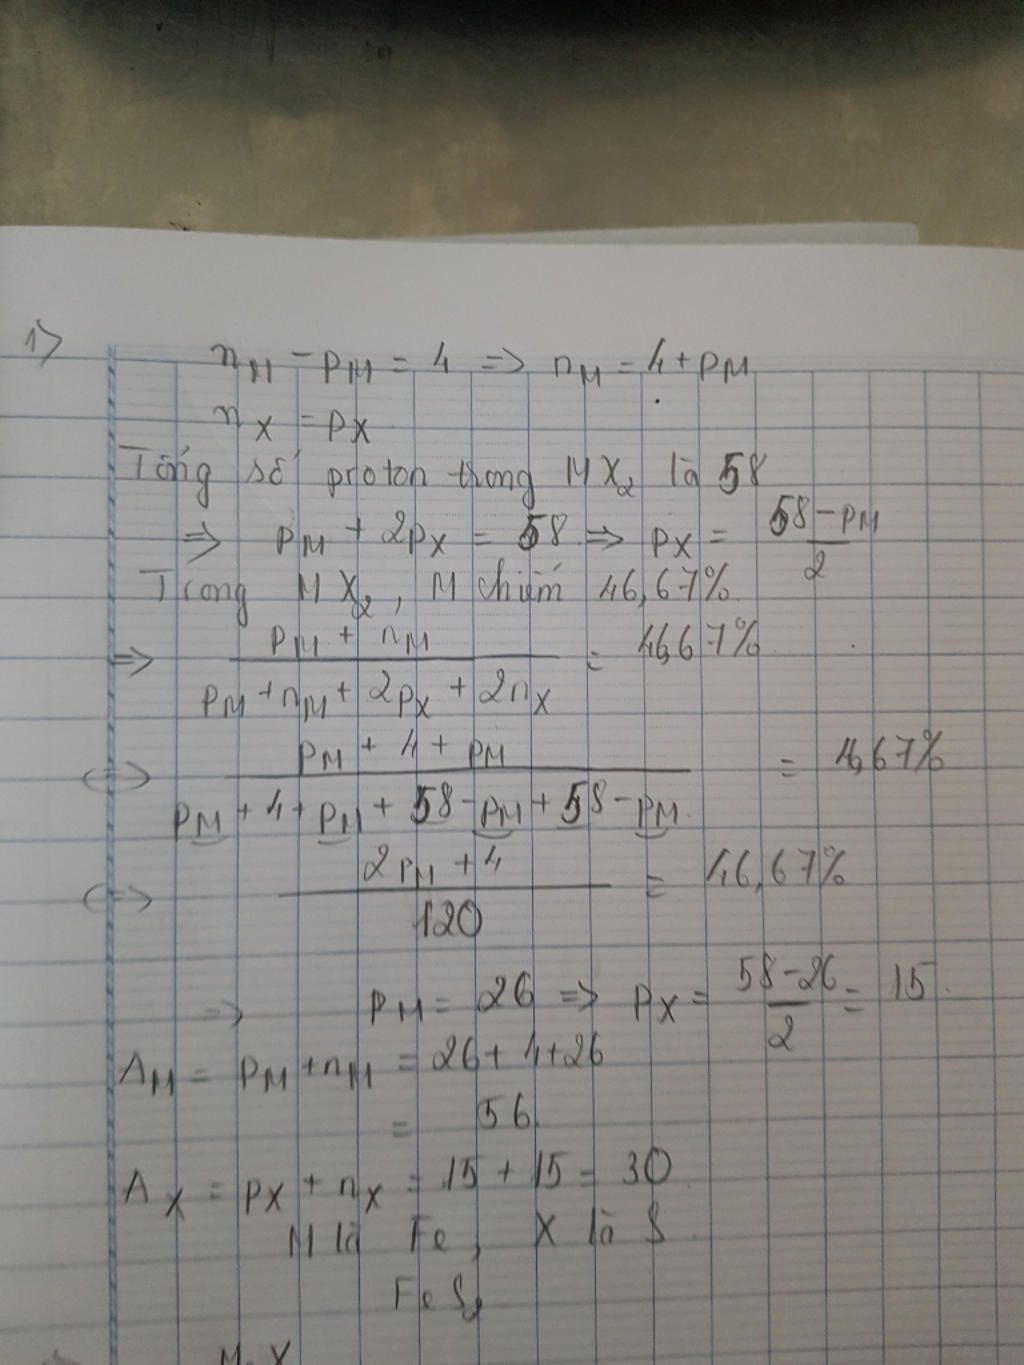 1>
n_M - p_M = 4 => n_M = 4 + p_M
n_X = p_X
Tổng số proton trong MX₂ là 58
=> p_M + 2p_X = 58 => p_X = (58 - p_M)/2
Trong MX₂, M chiếm 46,67%
=> (p_M + n_M)/(p_M + n_M + 2p_X + 2n_X) = 46,67%
<=> (p_M + 4 + p_M)/(p_M + 4 + p_M + 58 - p_M + 58 - p_M) = 46,67%
<=> (2p_M + 4)/120 = 46,67%
=> p_M = 26 => p_X = (58 - 26)/2 = 15.
A_M = p_M + n_M = 26 + 4 + 26
= 56
A_X = p_X + n_X = 15 + 15 = 30
M là Fe, X là S
FeS₂